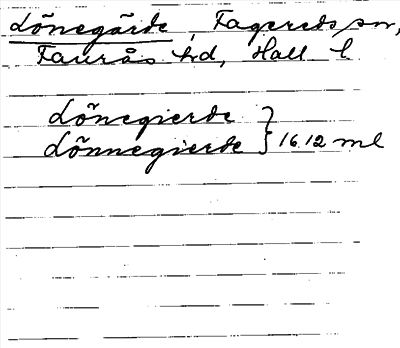 Lönegärde, Fagereds sn,
Faurås hd, Hall l.
Lönegierde
Lönnegierde } 1612 ml